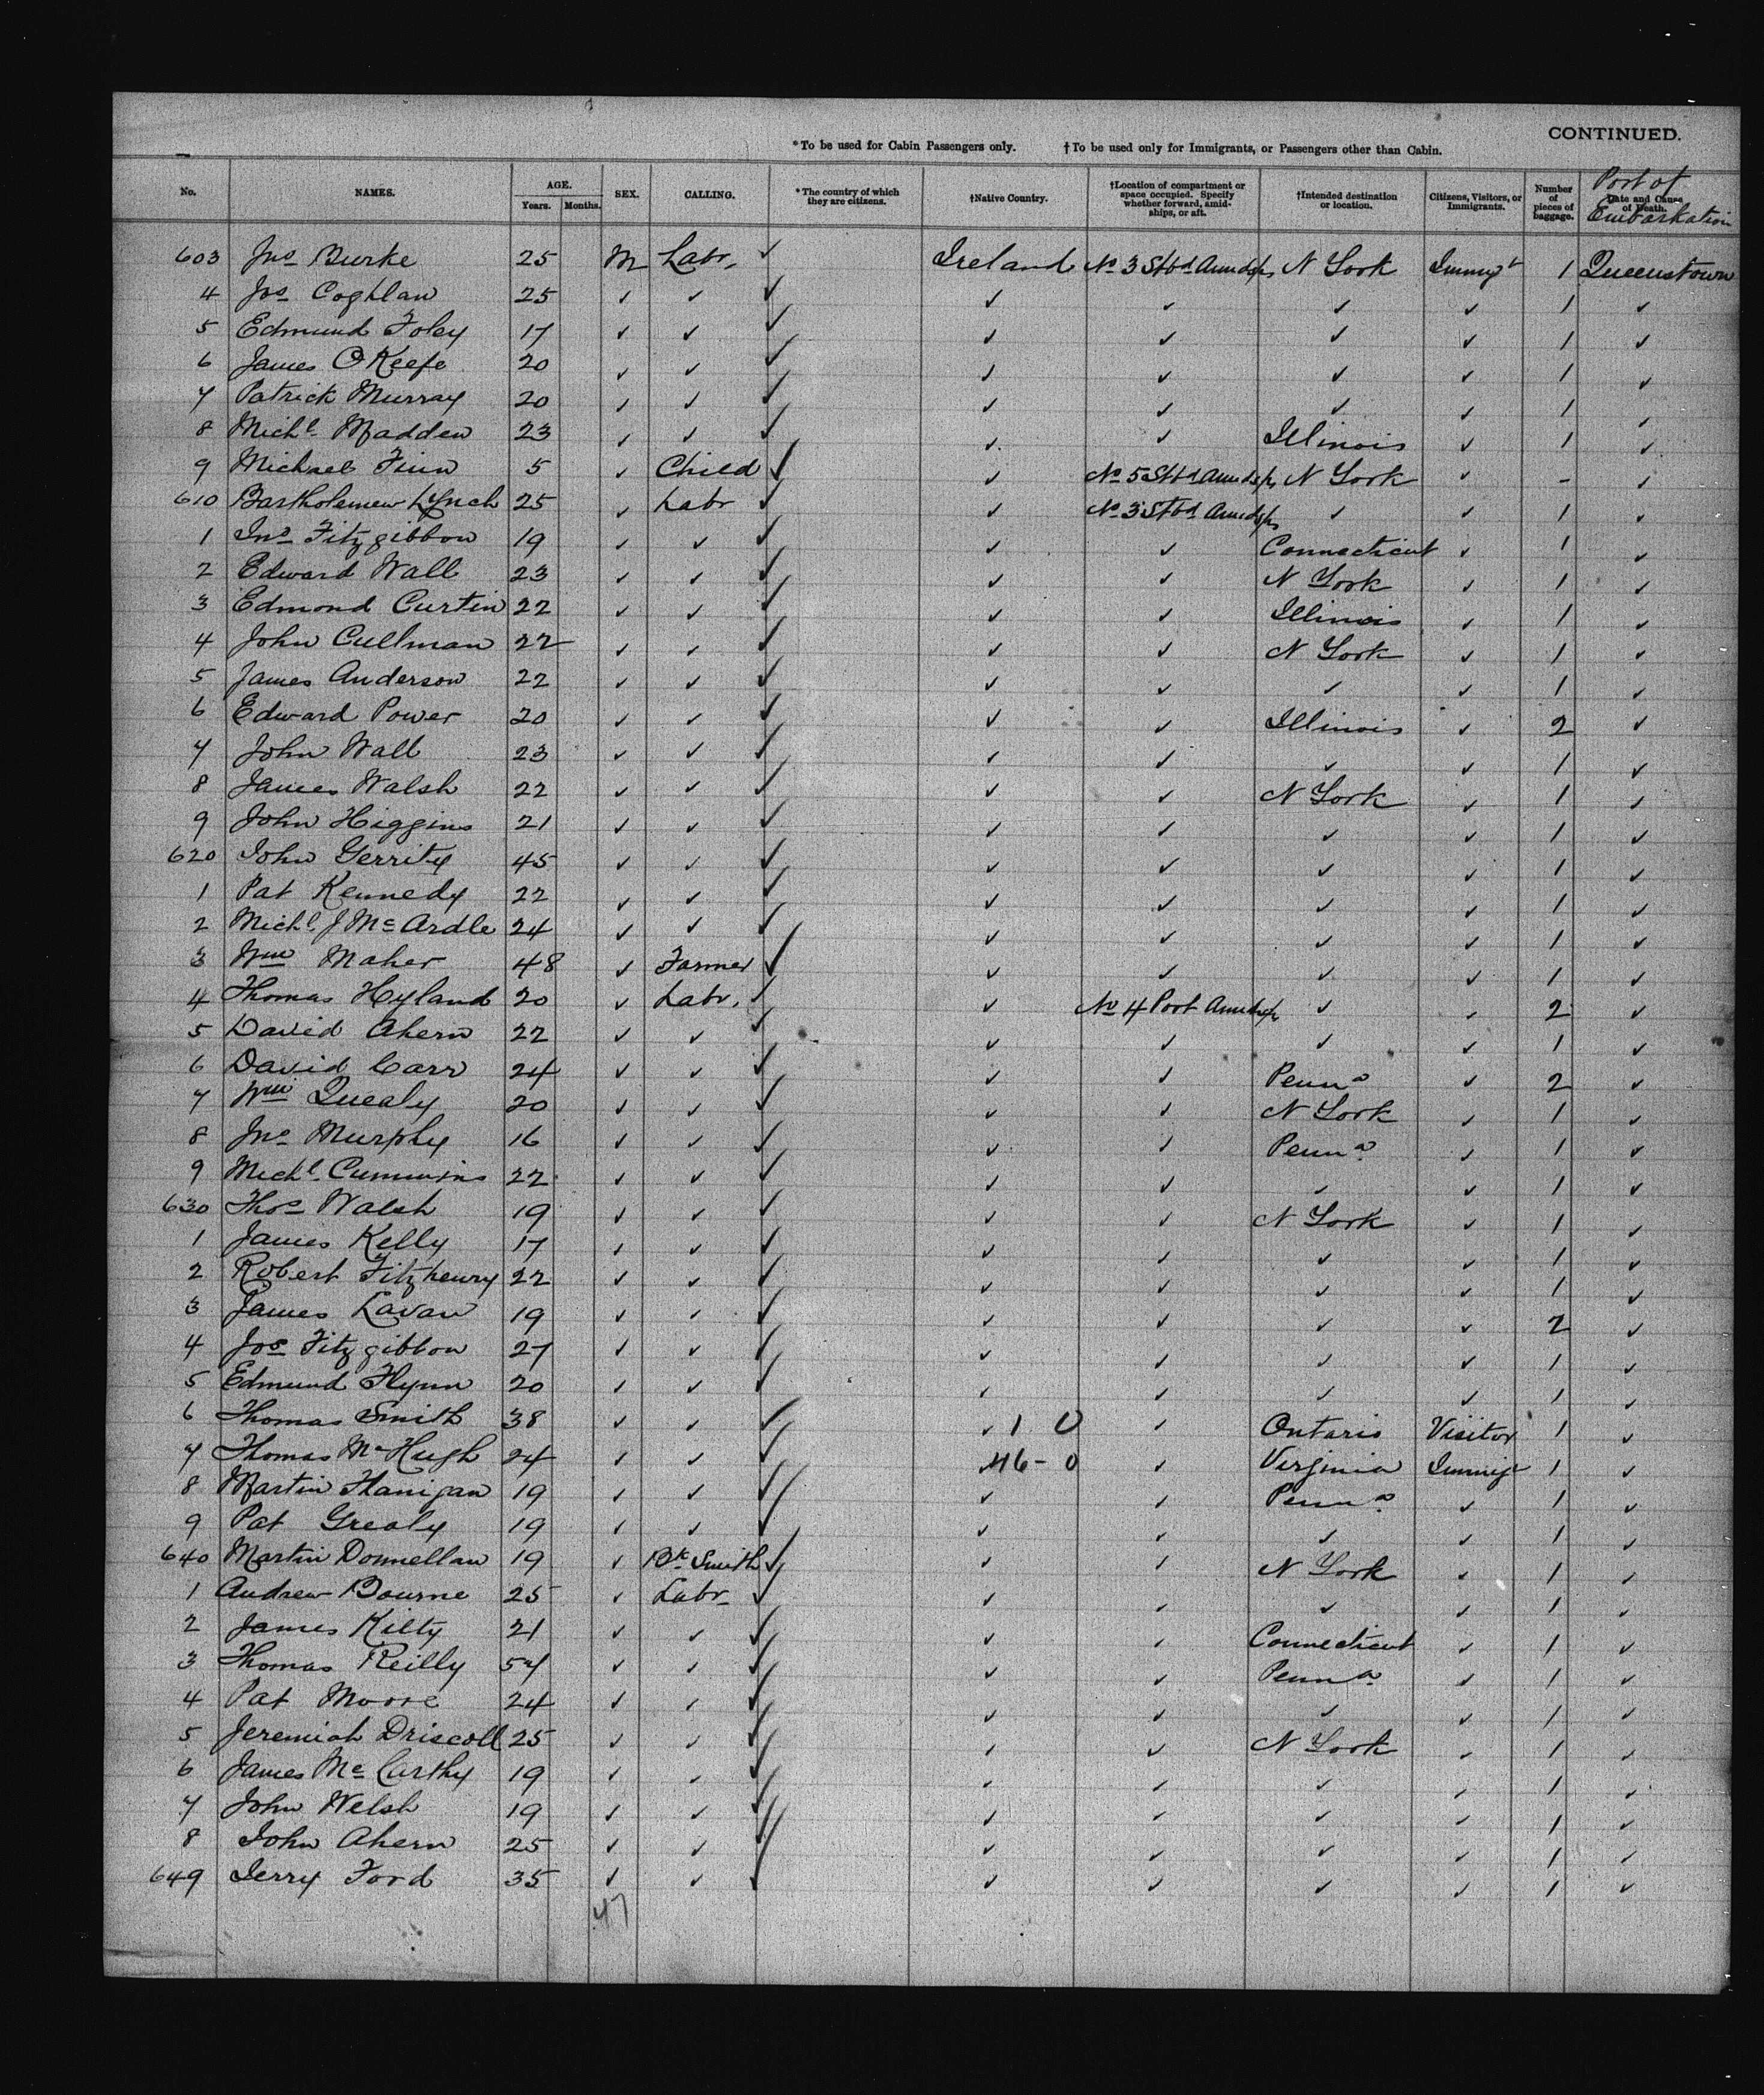 CONTINUED.
*To be used for Cabin Passengers only. †To be used only for Immigrants, or Passengers other than Cabin.
No. NAMES. AGE. Years. Months. SEX. CALLING. *The country of which they are citizens. †Native Country. †Location of compartment or space occupied. Specify whether forward, amidships, or aft. †Intended destination or location. Citizens, Visitors, or Immigrants. Number of pieces of baggage. Date and Cause of Death. Port of Embarkation
603 Jno Burke 25 M Labr. ✓ Ireland No 3 Stbd Amidsps N York Immigt 1 Queenstown
4 Jos Coghlan 25 ✓ ✓ ✓ ✓ ✓ ✓ ✓ 1 ✓
5 Edmund Foley 17 ✓ ✓ ✓ ✓ ✓ ✓ ✓ 1 ✓
6 James O'Keefe 20 ✓ ✓ ✓ ✓ ✓ ✓ ✓ 1 ✓
7 Patrick Murray 20 ✓ ✓ ✓ ✓ ✓ ✓ ✓ 1 ✓
8 Michl Madden 23 ✓ ✓ ✓ ✓ ✓ Illinois ✓ 1 ✓
9 Michael Finn 5 ✓ Child ✓ ✓ No 5 Stbd Amidsps N York ✓ - ✓
610 Bartholemew Lynch 25 ✓ Labr ✓ ✓ No 3 Stbd Amidsps ✓ ✓ 1 ✓
1 Jno Fitzgibbon 19 ✓ ✓ ✓ ✓ ✓ Connecticut ✓ 1 ✓
2 Edward Wall 23 ✓ ✓ ✓ ✓ ✓ N York ✓ 1 ✓
3 Edmond Curtin 22 ✓ ✓ ✓ ✓ ✓ Illinois ✓ 1 ✓
4 John Cullman 22 ✓ ✓ ✓ ✓ ✓ N York ✓ 1 ✓
5 James Anderson 22 ✓ ✓ ✓ ✓ ✓ ✓ ✓ 1 ✓
6 Edward Power 20 ✓ ✓ ✓ ✓ ✓ Illinois ✓ 2 ✓
7 John Wall 23 ✓ ✓ ✓ ✓ ✓ ✓ ✓ 1 ✓
8 James Walsh 22 ✓ ✓ ✓ ✓ ✓ N York ✓ 1 ✓
9 John Higgins 21 ✓ ✓ ✓ ✓ ✓ ✓ ✓ 1 ✓
620 John Gerrity 45 ✓ ✓ ✓ ✓ ✓ ✓ ✓ 1 ✓
1 Pat Kennedy 22 ✓ ✓ ✓ ✓ ✓ ✓ ✓ 1 ✓
2 Michl J McArdle 24 ✓ ✓ ✓ ✓ ✓ ✓ ✓ 1 ✓
3 Wm Maher 48 ✓ Farmer ✓ ✓ ✓ ✓ ✓ 1 ✓
4 Thomas Hyland 20 ✓ Labr. ✓ ✓ No 4 Port Amidsps ✓ ✓ 2 ✓
5 David Ahern 22 ✓ ✓ ✓ ✓ ✓ ✓ ✓ 1 ✓
6 David Carr 24 ✓ ✓ ✓ ✓ ✓ Penna ✓ 2 ✓
7 Wm Quealy 20 ✓ ✓ ✓ ✓ ✓ N York ✓ 1 ✓
8 Jno Murphy 16 ✓ ✓ ✓ ✓ ✓ Penna ✓ 1 ✓
9 Michl Cummins 22 ✓ ✓ ✓ ✓ ✓ ✓ ✓ 1 ✓
630 Thos Walsh 19 ✓ ✓ ✓ ✓ ✓ N York ✓ 1 ✓
1 James Kelly 17 ✓ ✓ ✓ ✓ ✓ ✓ ✓ 1 ✓
2 Robert Fitzhenry 22 ✓ ✓ ✓ ✓ ✓ ✓ ✓ 1 ✓
3 James Lavan 19 ✓ ✓ ✓ ✓ ✓ ✓ ✓ 2 ✓
4 Jos Fitzgibbon 27 ✓ ✓ ✓ ✓ ✓ ✓ ✓ 1 ✓
5 Edmund Flynn 20 ✓ ✓ ✓ ✓ ✓ ✓ ✓ 1 ✓
6 Thomas Smith 38 ✓ ✓ ✓ ✓ 1 0 ✓ Ontario Visitor 1 ✓
7 Thomas McHugh 24 ✓ ✓ ✓ ✓ 46-0 ✓ Virginia Immigt 1 ✓
8 Martin Flanigan 19 ✓ ✓ ✓ ✓ ✓ Penna ✓ 1 ✓
9 Pat Grealy 19 ✓ ✓ ✓ ✓ ✓ ✓ ✓ 1 ✓
640 Martin Donnellan 19 ✓ Bk Smith ✓ ✓ ✓ N York ✓ 1 ✓
1 Andrew Bourne 25 ✓ Labr ✓ ✓ ✓ ✓ ✓ 1 ✓
2 James Kilty 21 ✓ ✓ ✓ ✓ ✓ Connecticut ✓ 1 ✓
3 Thomas Reilly 57 ✓ ✓ ✓ ✓ ✓ Penna ✓ 1 ✓
4 Pat Moore 24 ✓ ✓ ✓ ✓ ✓ ✓ ✓ 1 ✓
5 Jeremiah Driscoll 25 ✓ ✓ ✓ ✓ ✓ N York ✓ 1 ✓
6 James McCarthy 19 ✓ ✓ ✓ ✓ ✓ ✓ ✓ 1 ✓
7 John Welsh 19 ✓ ✓ ✓ ✓ ✓ ✓ ✓ 1 ✓
8 John Ahern 25 ✓ ✓ ✓ ✓ ✓ ✓ ✓ 1 ✓
649 Jerry Ford 35 ✓ ✓ ✓ ✓ ✓ ✓ ✓ 1 ✓
47